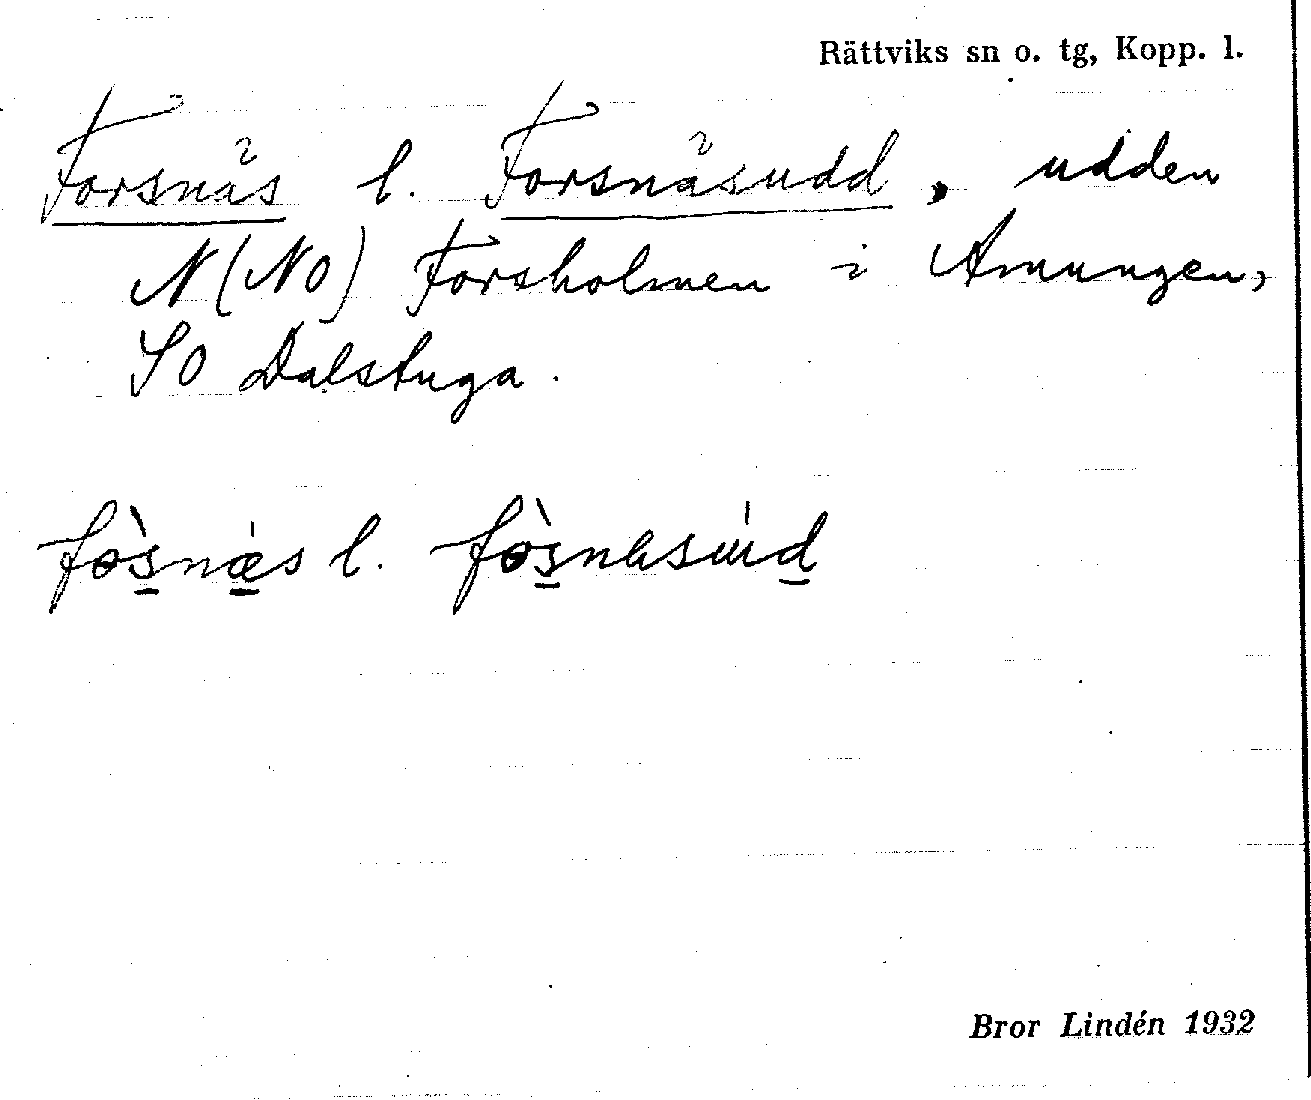 Rättviks sn o. tg, Kopp. l.
Forsnäs l. Forsnäsudd, udden
N (NO) Forsholmen i Amungen,
SO Dalstuga.
fòs̲nǽ̲s l. fòs̲næsúd̲
Bror Lindén 1932